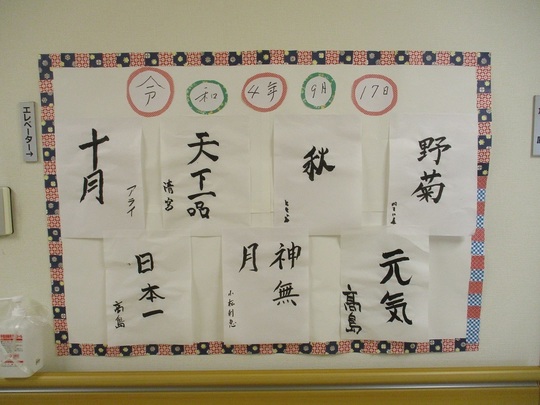 令和4年9月17日
エレベーター→
野菊
秋
天下一品
清宮
十月
アライ
元気
髙島
神無月
日本一
髙島